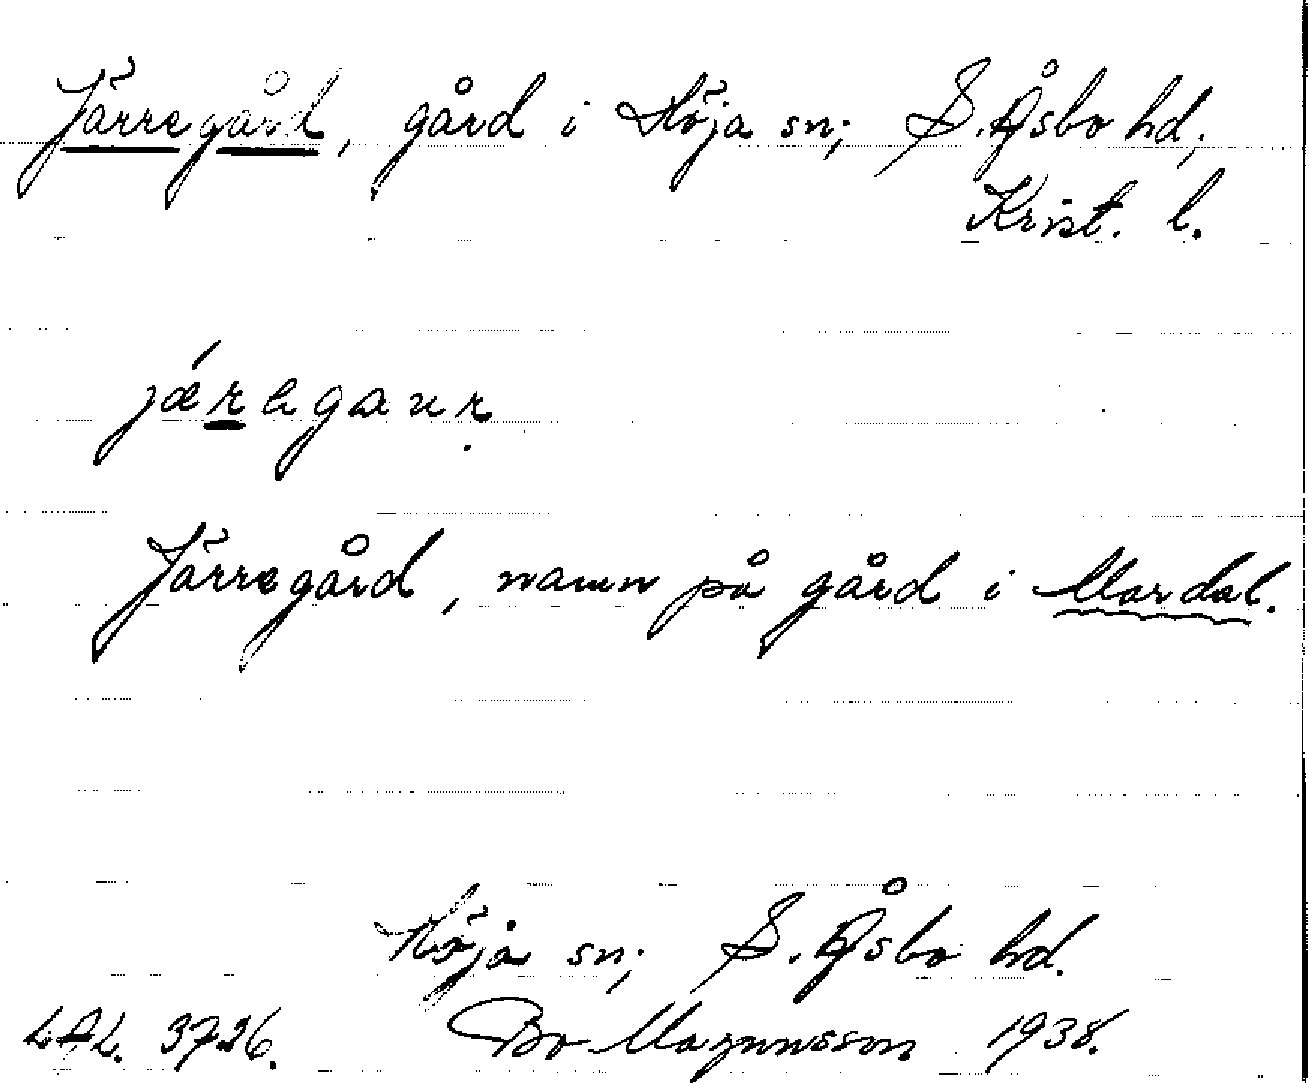 Järregård, gård i Höja sn; S. Åsbo hd;
Krist. l.
jǽregaur
Järregård, namn på gård i Mardal.
Höja sn; S. Åsbo hd.
LAL. 3726. Bo Magnusson 1938.